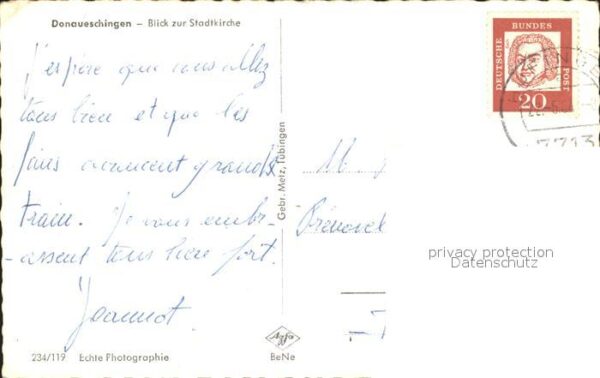 Donaueschingen – Blick zur Stadtkirche
J'espère que vous allez
tous bien et que les
foins avancent grand
train. Je vous embr-
-assent tous bien fort.
Jeannot.
234/119 Echte Photographie
Gebr. Metz, Tübingen
Agfa
BeNe
DEUTSCHE BUNDES POST
20
7713
M
privacy protection
Datenschutz